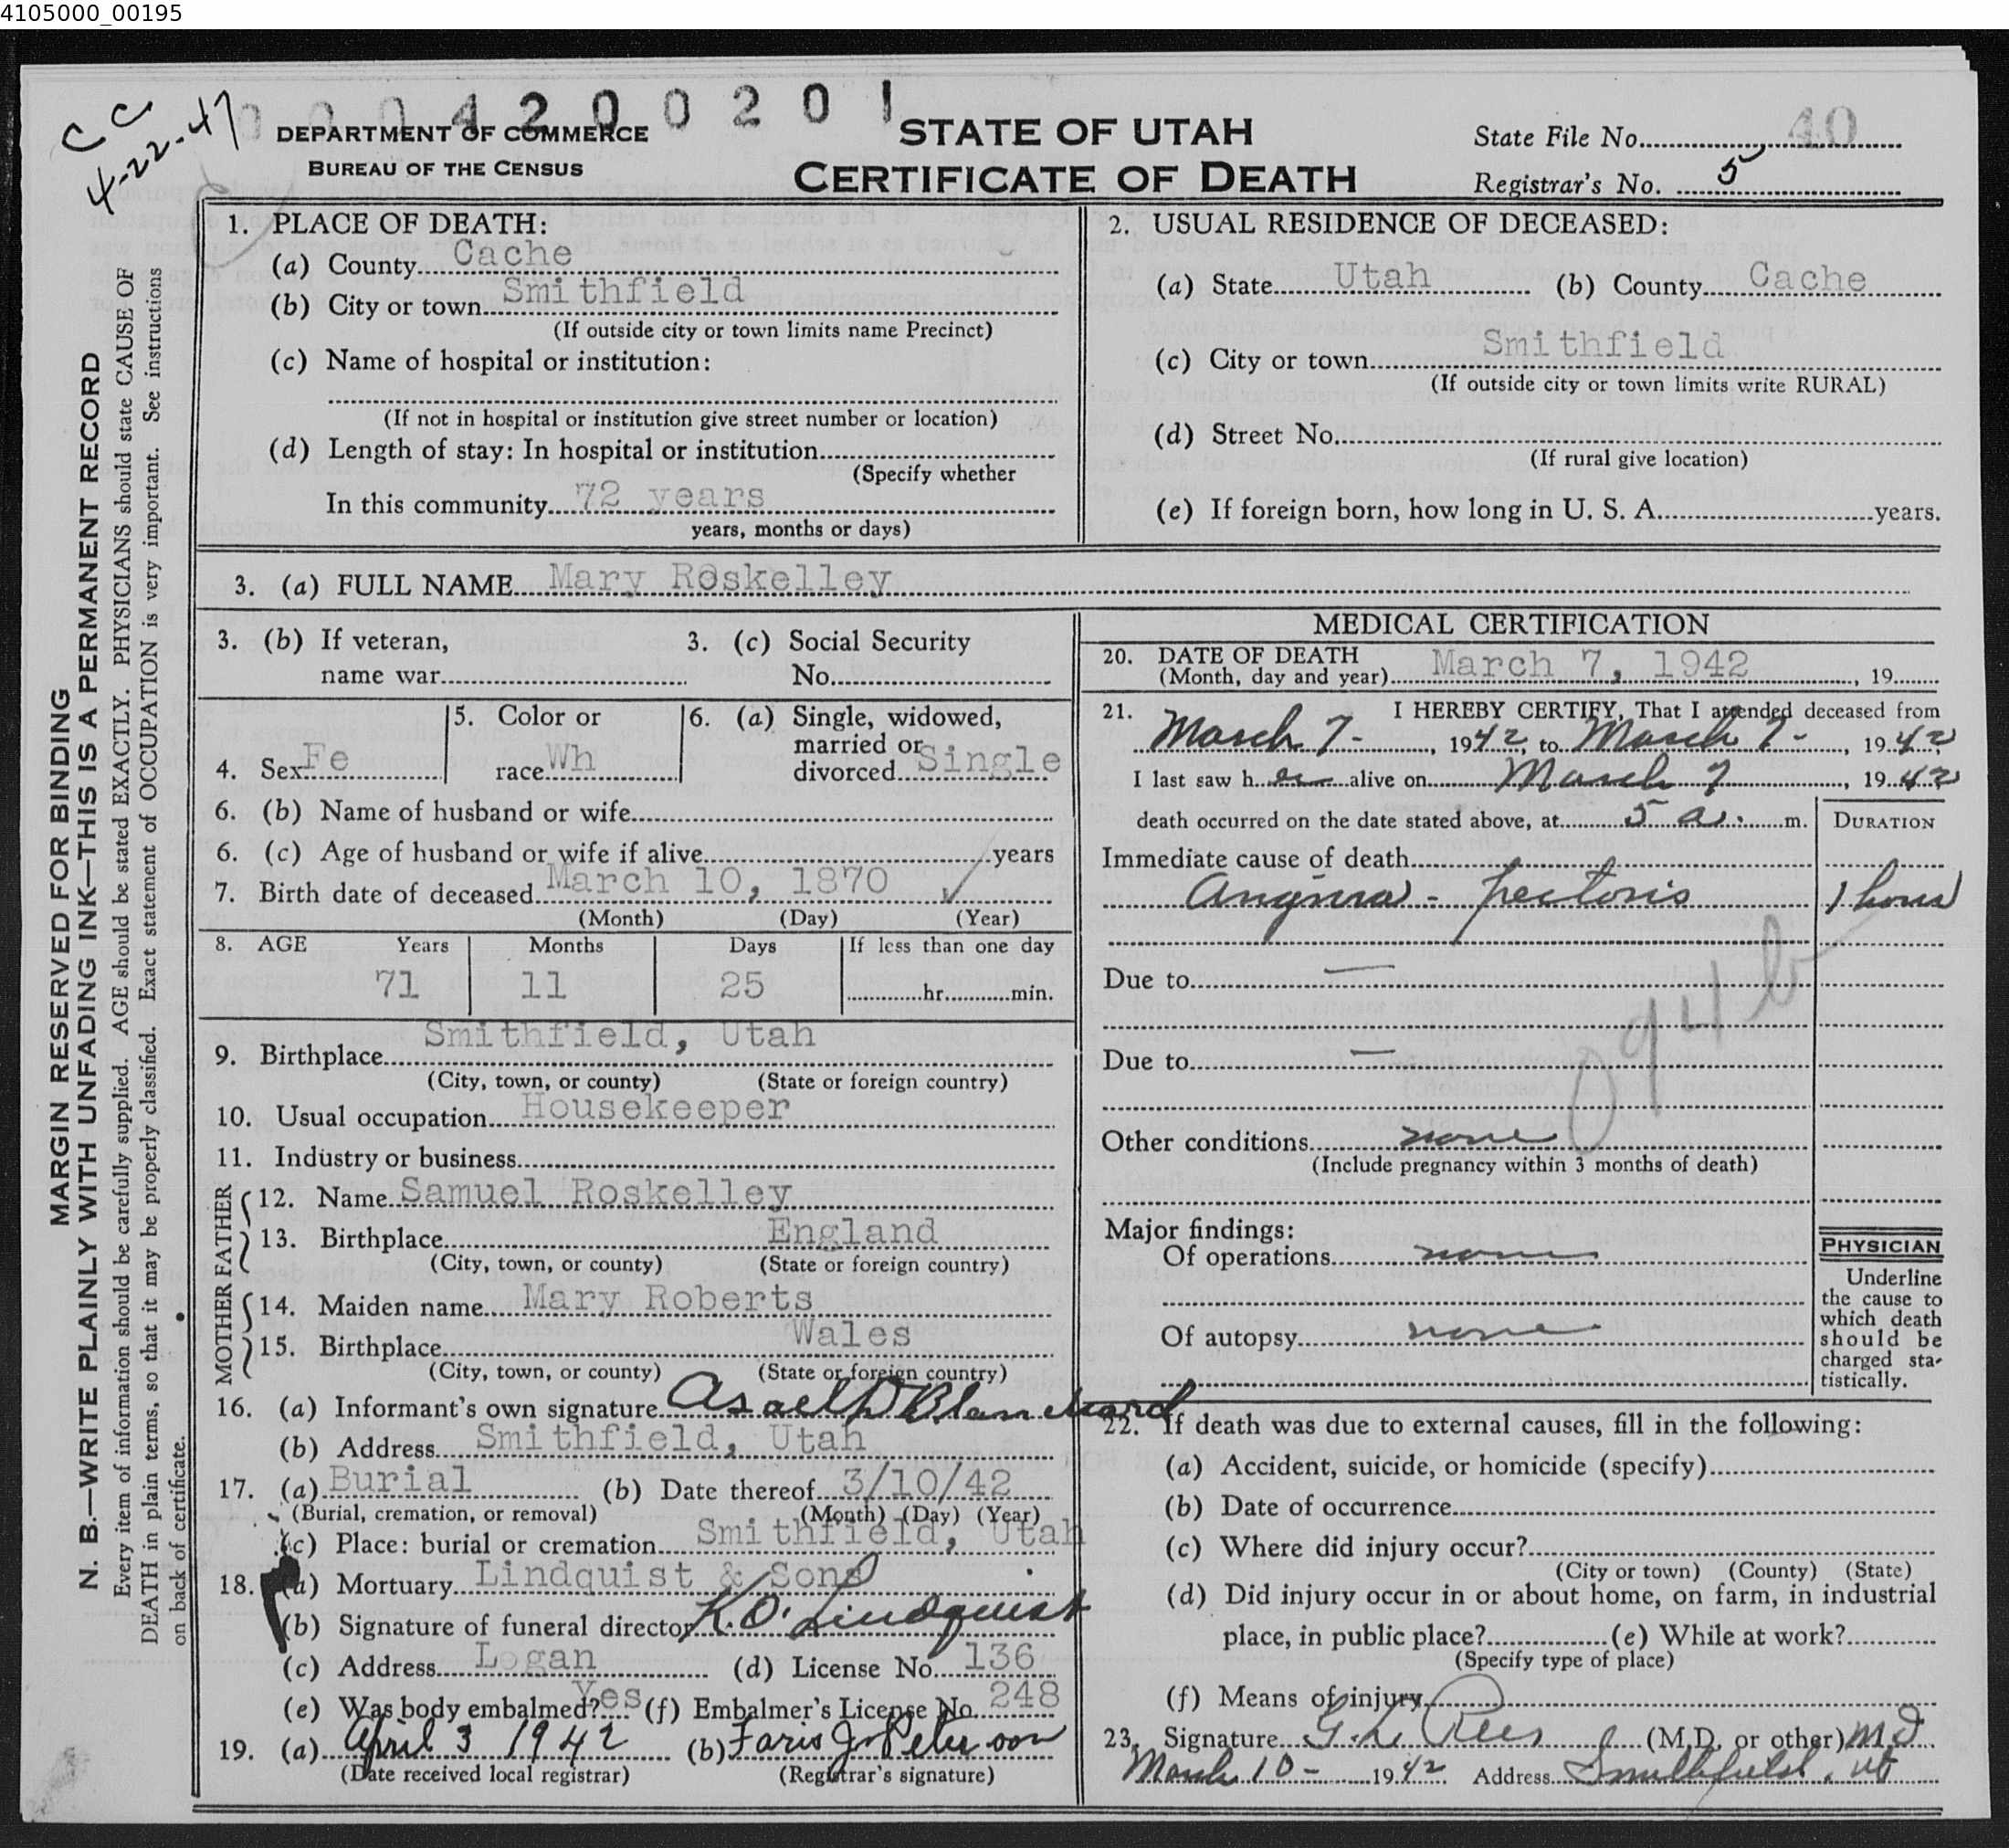 4105000_00195
CC
4-22-47
000420020 1
DEPARTMENT OF COMMERCE
BUREAU OF THE CENSUS
STATE OF UTAH
CERTIFICATE OF DEATH
State File No. 40
Registrar's No. 5
MARGIN RESERVED FOR BINDING
N. B.—WRITE PLAINLY WITH UNFADING INK—THIS IS A PERMANENT RECORD
Every item of information should be carefully supplied. AGE should be stated EXACTLY. PHYSICIANS should state CAUSE OF
DEATH in plain terms, so that it may be properly classified. Exact statement of OCCUPATION is very important. See instructions
on back of certificate.
1. PLACE OF DEATH:
(a) County Cache
(b) City or town Smithfield
(If outside city or town limits name Precinct)
(c) Name of hospital or institution:
(If not in hospital or institution give street number or location)
(d) Length of stay: In hospital or institution
(Specify whether
In this community 72 years
years, months or days)
2. USUAL RESIDENCE OF DECEASED:
(a) State Utah (b) County Cache
(c) City or town Smithfield
(If outside city or town limits write RURAL)
(d) Street No.
(If rural give location)
(e) If foreign born, how long in U. S. A. years.
3. (a) FULL NAME Mary Roskelley
3. (b) If veteran,
name war
3. (c) Social Security
No.
4. Sex Fe
5. Color or
race Wh
6. (a) Single, widowed,
married or
divorced Single
6. (b) Name of husband or wife
6. (c) Age of husband or wife if alive years
7. Birth date of deceased March 10, 1870 ✓
(Month) (Day) (Year)
8. AGE Years Months Days If less than one day
71 11 25 hr. min.
9. Birthplace Smithfield, Utah
(City, town, or county) (State or foreign country)
10. Usual occupation Housekeeper
11. Industry or business
FATHER
12. Name Samuel Roskelley
13. Birthplace England
(City, town, or county) (State or foreign country)
MOTHER
14. Maiden name Mary Roberts
15. Birthplace Wales
(City, town, or county) (State or foreign country)
16. (a) Informant's own signature Asael D Blanchard
(b) Address Smithfield, Utah
17. (a) Burial (b) Date thereof 3/10/42
(Burial, cremation, or removal) (Month) (Day) (Year)
(c) Place: burial or cremation Smithfield, Utah
18. (a) Mortuary Lindquist & Sons
(b) Signature of funeral director K.O. Lindquist
(c) Address Logan (d) License No. 136
(e) Was body embalmed? Yes (f) Embalmer's License No. 248
19. (a) April 3 1942 (b) Faris J. Peterson
(Date received local registrar) (Registrar's signature)
MEDICAL CERTIFICATION
20. DATE OF DEATH
(Month, day and year) March 7, 1942, 19
21. I HEREBY CERTIFY, That I attended deceased from
March 7-, 1942, to March 7-, 1942
I last saw her alive on March 7, 1942
death occurred on the date stated above, at 5 a. m.
DURATION
Immediate cause of death
Angina - pectoris 1 hour
Due to —
094b
Due to —
Other conditions none
(Include pregnancy within 3 months of death)
Major findings:
Of operations none
Of autopsy none
PHYSICIAN
Underline
the cause to
which death
should be
charged sta-
tistically.
22. If death was due to external causes, fill in the following:
(a) Accident, suicide, or homicide (specify)
(b) Date of occurrence
(c) Where did injury occur?
(City or town) (County) (State)
(d) Did injury occur in or about home, on farm, in industrial
place, in public place? (e) While at work?
(Specify type of place)
(f) Means of injury
23. Signature G. L. Rees (M.D. or other) M.D.
March 10- 1942 Address Smithfield, Ut